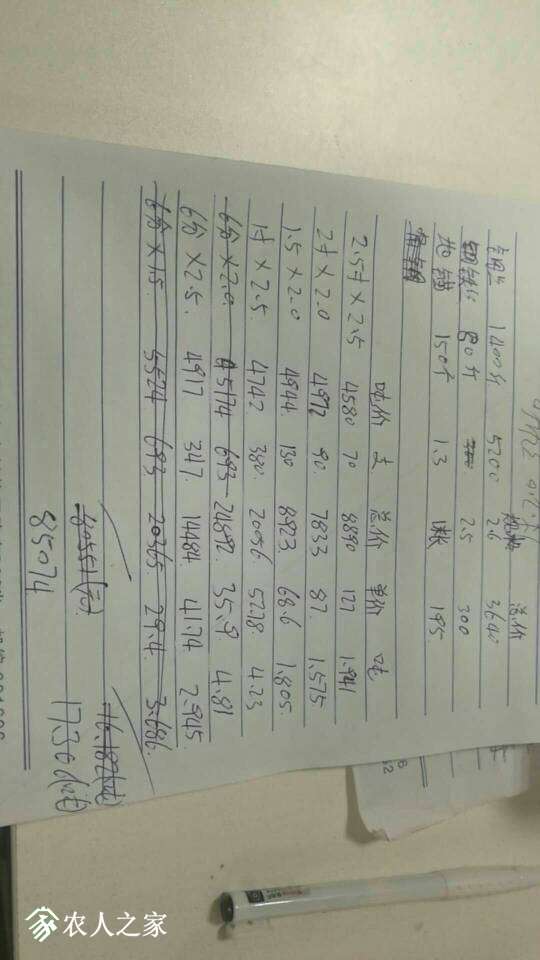 总价
钢丝 1400斤 5200 2.6 3640
钢铁丝 80斤 2.5 300
地锚 150个 1.3 195
吨价 支 总价 单价 吨
2.5寸×2.5 4580 70 8890 127 1.941
2寸×2.0 4972 90. 7833 87. 1.575
1.5×2.0 4944. 130 8923. 68.6 1.805.
1寸×2.5. 4742 380. 20056 52.78 4.23
6分×2.0. 4574 693 24892. 35.9 4.81
6分×2.5. 4917 347. 14484. 41.74 2.945.
6分×1.5. 5524 693 20365. 29.4. 3.686.
80551(元). 16.182(吨)
85074 17.306(吨)
农人之家